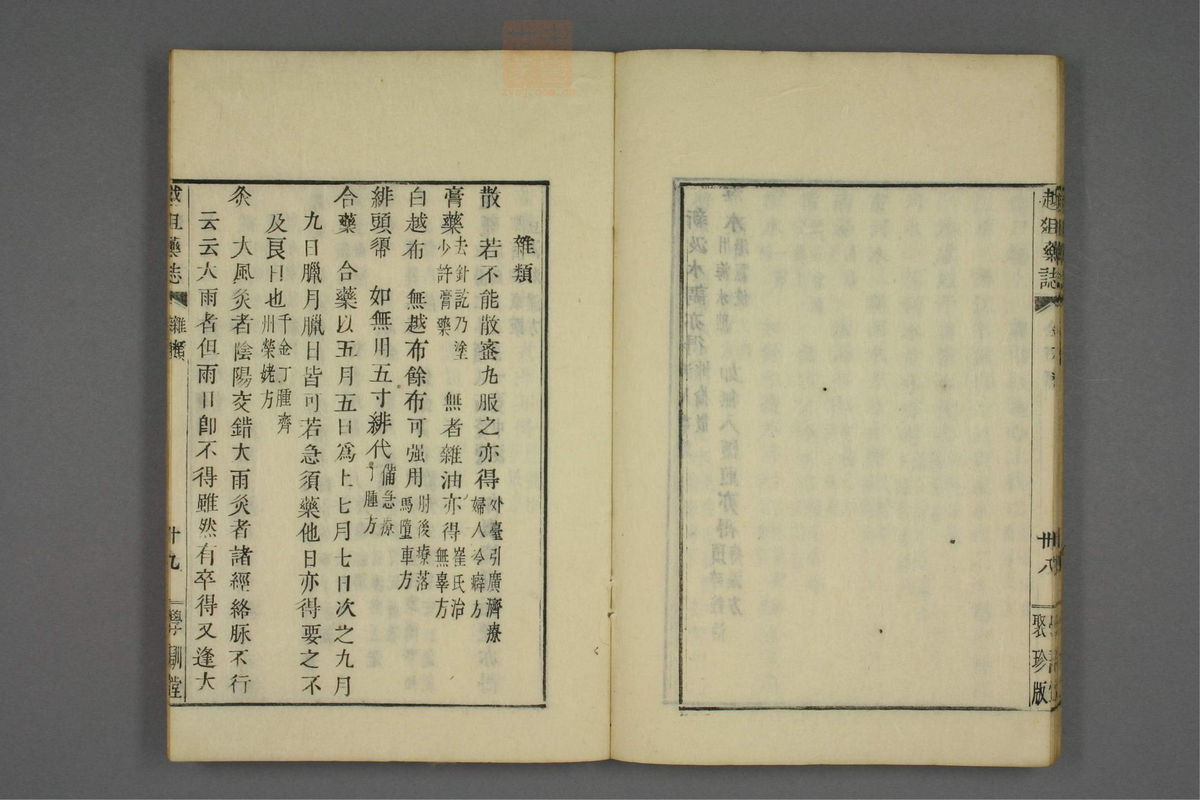 越俎藥誌
卅八
聚珍版
雜類
散　若不能散蜜丸服之亦得外臺引廣濟療婦人冷癖方
膏藥去針訖乃塗少許膏藥　無者雜油亦得崔氏治無辜方
白越布　無越布餘布可强用肘後療落馬墮車方
緋頭䋺　如無用五寸緋代備急療丁腫方
合藥　合藥以五月五日爲上七月七日次之九月
九日臘月臘日皆可若急須藥他日亦得要之不
及良日也千金丁腫齊州榮姥方
灸　大風灸者陰陽交錯大雨灸者諸經絡脉不行
云云大雨者但雨日卽不得雖然有卒得又逢大
越俎藥誌
雜類
卅九
學訓堂